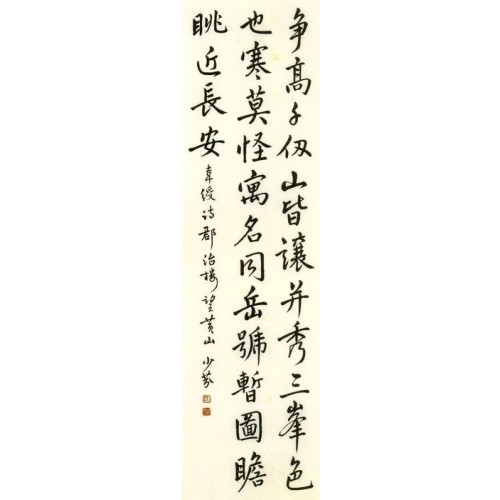 争高千仭山皆讓并秀三峯色
也寒莫怪寓名同岳號暫圖瞻
眺近長安
韋綬詩郡治樓望黄山 少芬